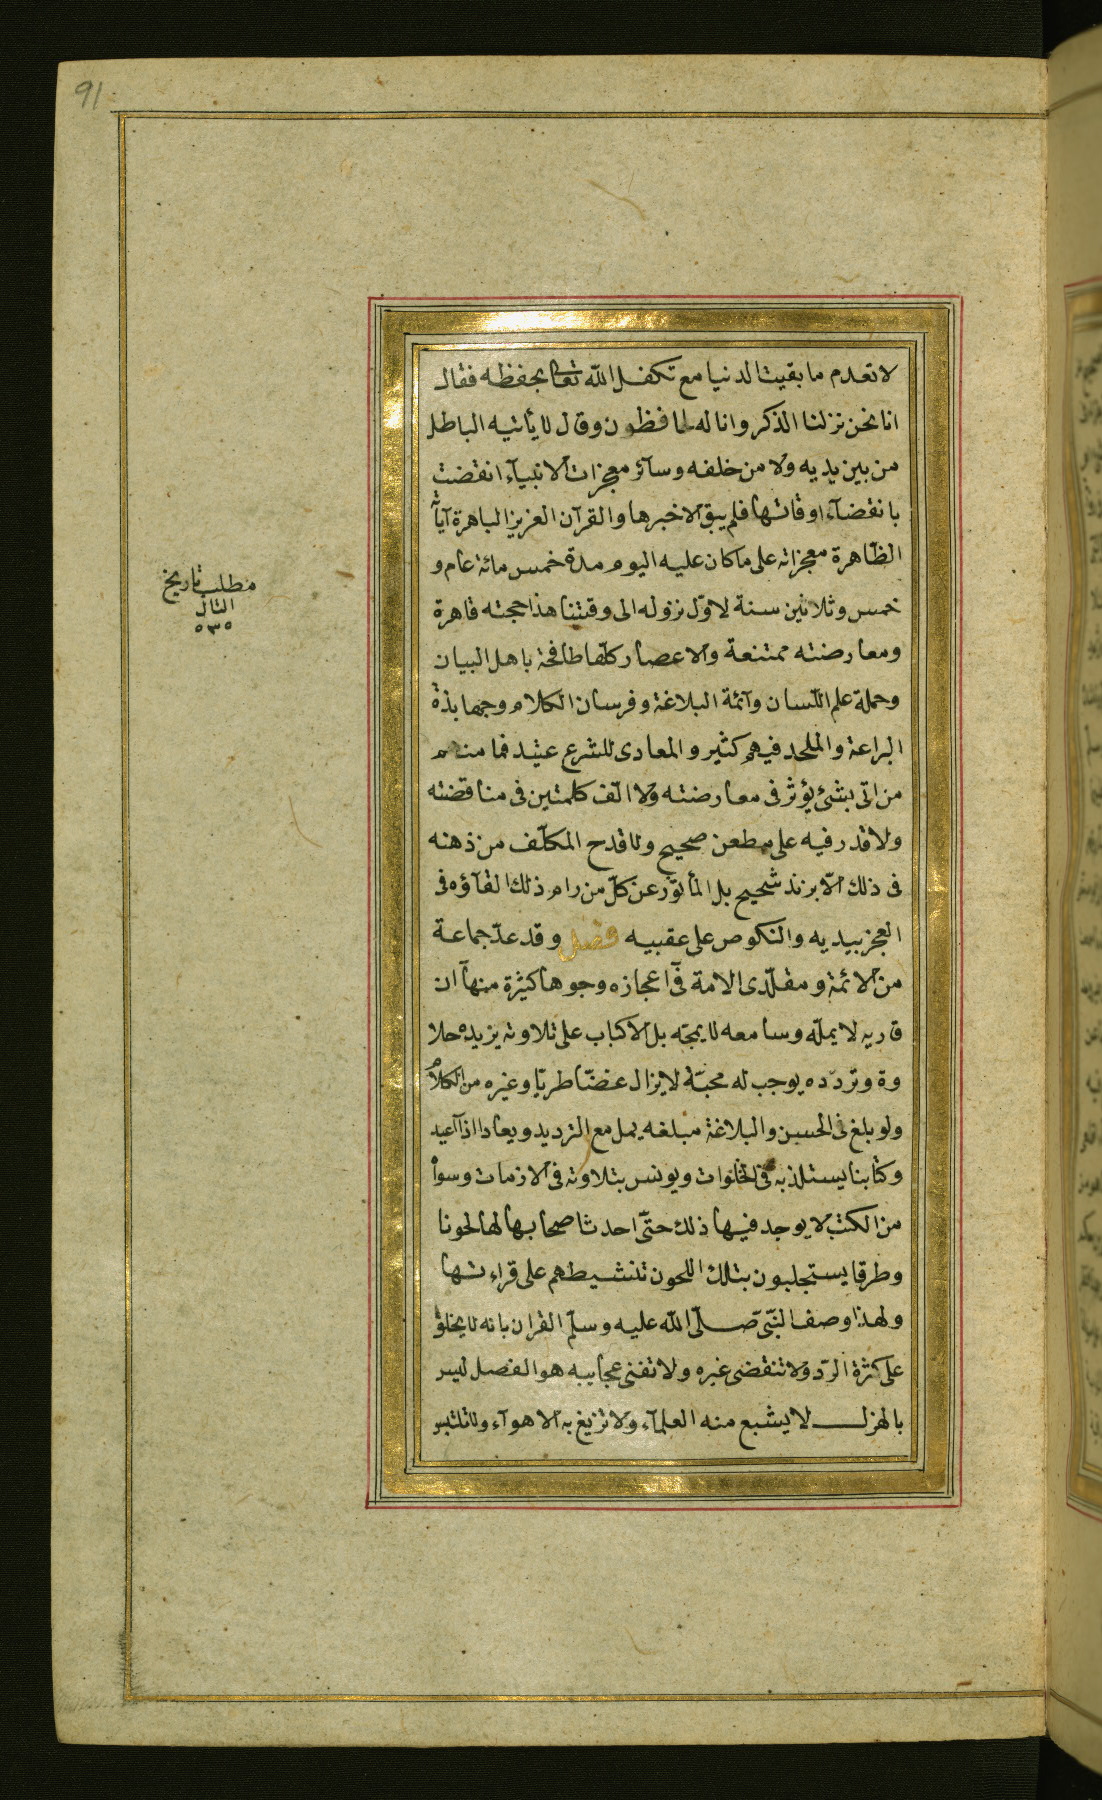 91
لا تعدم ما بقيت الدنيا مع تكفل الله تعالى بحفظه فقال
انا نحن نزلنا الذكر وانا له لحافظون وقال لا يأتيه الباطل
من بين يديه ولا من خلفه وسآئر معجزات الانبيآء انقضت
بانقضآء اوقاتها فلم يبق الا خبرها والقرآن العزيز الباهرة آياته
الظاهرة معجزاته على ما كان عليه اليوم مدة خمس مائة عام و
خمس وثلاثين سنة لاول نزوله الى وقتنا هذا حجته قاهرة
ومعارضته ممتنعة والاعصار كلها طافحة باهل البيان
وحملة علم اللسان وآئمة البلاغة وفرسان الكلام وجهابذة
البراعة والملحد فيهم كثير والمعادى للشرع عتيد فما منهم
من اتى بشئ يؤثر فى معارضته ولا الّف كلمتين فى مناقضته
ولا قدر فيه على مطعن صحيح ولا قدح المكلّف من ذهنه
فى ذلك الّا بزند شحيح بل المأثور عن كلّ من رام ذلك القآؤه فى
العجز بيديه والنكوص على عقبيه فصل وقد عدّ جماعة
من الائمة ومقلّدى الامة فى اعجازه وجوها كثيرة منها ان
قاريه لا يملّه وسامعه لا يمجّه بل الاكباب على تلاوته يزيده حلا
وة وتردده يوجب له محبّة لا يزال غضّا طريّا وغيره من الكلام
ولو بلغ فى الحسن والبلاغة مبلغه يمل مع الترديد ويعادا اذا آعيد
وكتابنا يستلذ به فى الخلوات ويونس بتلاوته فى الازمات وسواه
من الكتب لا يوجد فيها ذلك حتّى احدث اصحابها لها لحونا
وطرقا يستجلبون بتلك اللحون تنشيطهم على قراءتها
ولهذا وصف النّبىّ صلّى الله عليه وسلّم القرآن بانه لا يخلق
على كثرة الردّ ولا تنقضى عبره ولا تفنى عجايبه هو الفصل ليس
بالهزل لا يشبع منه العلمآء ولا تزيغ به الاهوآء ولا تلتبس
مطلب تاريخ
التال
٥٣٥